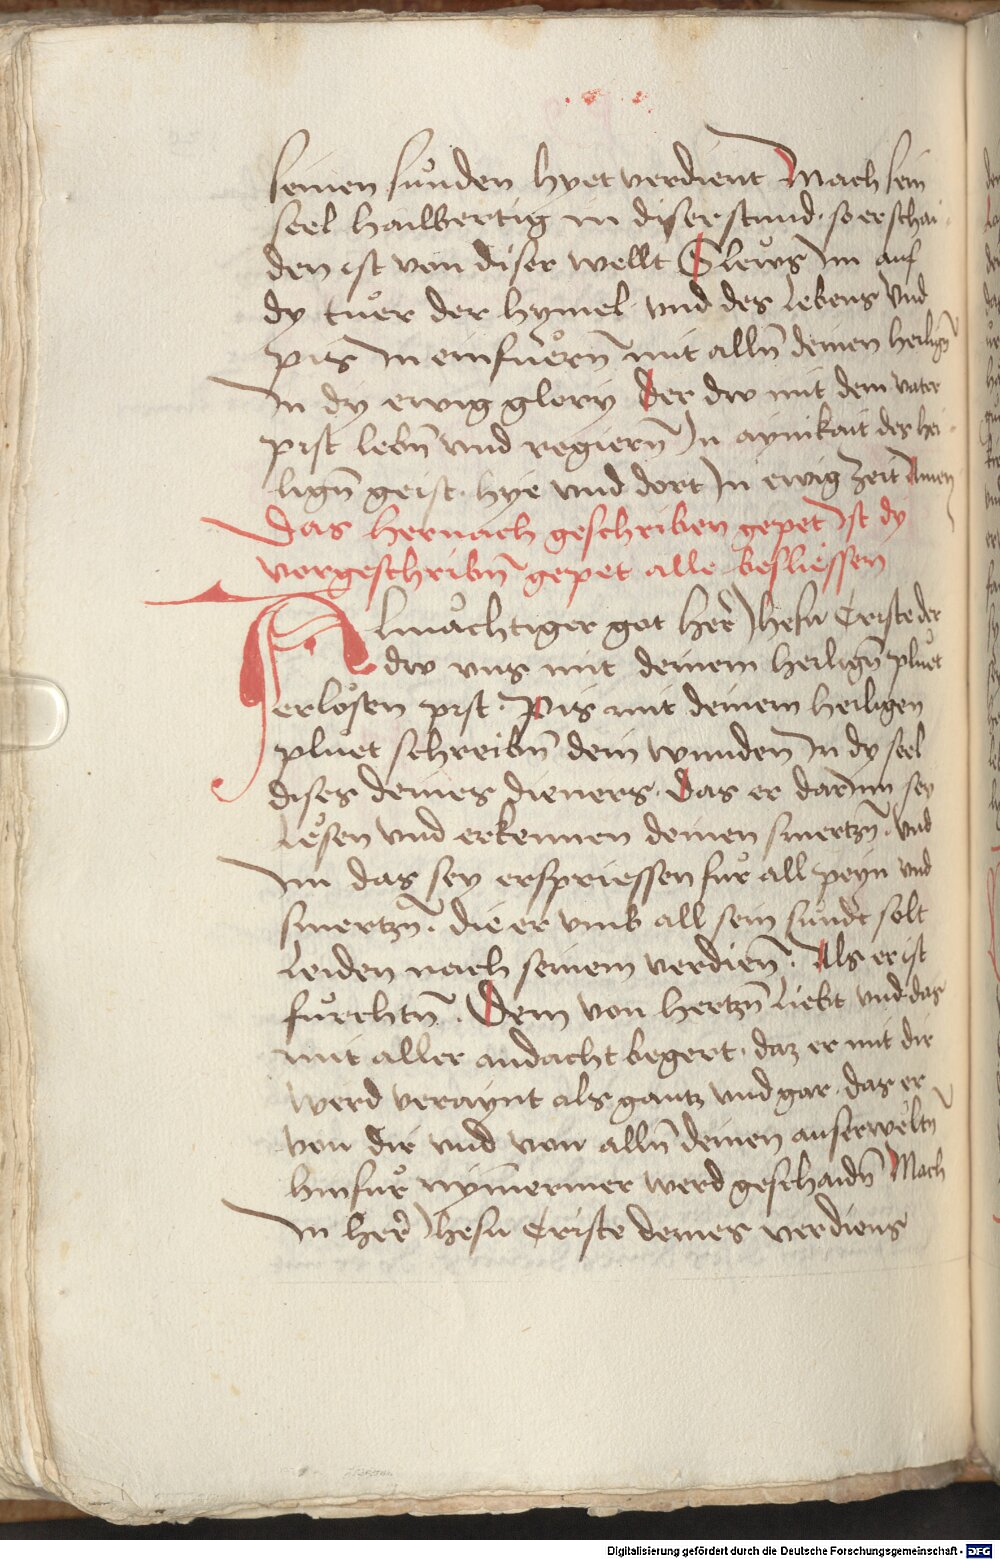 seinen sůnden hyet verdient Mach sein
seel hailbertig in diser stund · so er schai
den ist von diser wellt Slews Im auf
dy tuer der hymel · vnd des lebens Vnd
pis In einfuern̄ mit alln̄ deinen heilign̄
In dy ewig glory Der dw mit dem vater
prst lebn̄ vnd regiern̄ In aynikait des hei
lign̄ geist · hye vnd dort In ewig zeit Amen
Das hernach geschriben gepet Ist dy
vorgeschribn̄ gepet alle besliessen
Almåchtiger got her̄ Ihesu Criste der
dw vns mit deinem heilign̄ pluet
erlosten prst · Pis mit deinem heiligen
pluet schreibn̄ dein wunden In dy seel
dises deines dieners · Das er darinn sey
Lesen vnd erkennen deinen smertzn̄ · vnd
Im das sey erspriessen fůr all peyn vnd
smertzn̄ · die er vmb all sein sůndt solt
Leiden nach seinem verdien̄ · Als er ist
fůrchtn̄ · Dem von hertzn̄ Liebt vnd das
mit aller andacht begert · daz er mit dir
werd veraynt als gantz vnd gar · das er
von dir vnd von alln̄ deinen auserweltn̄
hinfůr nym̄ermer werd geschaidn̄ Mach
In her̄ Ihesu Criste deines verdiens
Digitalisierung gefördert durch die Deutsche Forschungsgemeinschaft - DFG